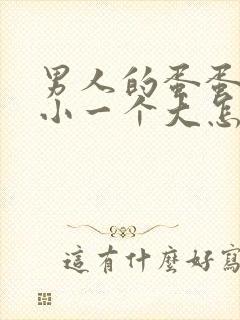 男人的蛋蛋
小一个大怎
這有什麼好寫